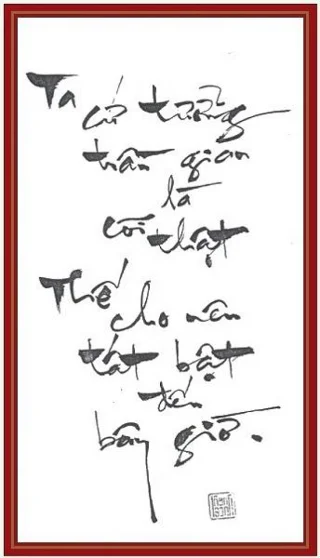 Ta
cứ tưởng
trần gian
là
cõi thật
Thế
cho nên
tất bật
đến
bây giờ.